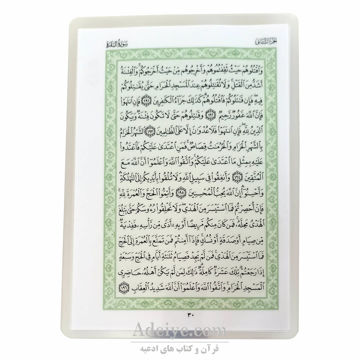 الجزء الثاني
سورة البقرة
وَاقْتُلُوهُمْ حَيْثُ ثَقِفْتُمُوهُمْ وَأَخْرِجُوهُمْ مِنْ حَيْثُ أَخْرَجُوكُمْ وَالْفِتْنَةُ
أَشَدُّ مِنَ الْقَتْلِ وَلَا تُقَاتِلُوهُمْ عِنْدَ الْمَسْجِدِ الْحَرَامِ حَتَّى يُقَاتِلُوكُمْ
فِيهِ فَإِنْ قَاتَلُوكُمْ فَاقْتُلُوهُمْ كَذَلِكَ جَزَاءُ الْكَافِرِينَ ١٩١ فَإِنِ انْتَهَوْا
فَإِنَّ اللَّهَ غَفُورٌ رَحِيمٌ ١٩٢ وَقَاتِلُوهُمْ حَتَّى لَا تَكُونَ فِتْنَةٌ وَيَكُونَ
الدِّينُ لِلَّهِ فَإِنِ انْتَهَوْا فَلَا عُدْوَانَ إِلَّا عَلَى الظَّالِمِينَ ١٩٣ الشَّهْرُ الْحَرَامُ
بِالشَّهْرِ الْحَرَامِ وَالْحُرُمَاتُ قِصَاصٌ فَمَنِ اعْتَدَى عَلَيْكُمْ فَاعْتَدُوا
عَلَيْهِ بِمِثْلِ مَا اعْتَدَى عَلَيْكُمْ وَاتَّقُوا اللَّهَ وَاعْلَمُوا أَنَّ اللَّهَ مَعَ
الْمُتَّقِينَ ١٩٤ وَأَنْفِقُوا فِي سَبِيلِ اللَّهِ وَلَا تُلْقُوا بِأَيْدِيكُمْ إِلَى التَّهْلُكَةِ
وَأَحْسِنُوا إِنَّ اللَّهَ يُحِبُّ الْمُحْسِنِينَ ١٩٥ وَأَتِمُّوا الْحَجَّ وَالْعُمْرَةَ لِلَّهِ
فَإِنْ أُحْصِرْتُمْ فَمَا اسْتَيْسَرَ مِنَ الْهَدْيِ وَلَا تَحْلِقُوا رُءُوسَكُمْ حَتَّى يَبْلُغَ
الْهَدْيُ مَحِلَّهُ فَمَنْ كَانَ مِنْكُمْ مَرِيضًا أَوْ بِهِ أَذًى مِنْ رَأْسِهِ فَفِدْيَةٌ
مِنْ صِيَامٍ أَوْ صَدَقَةٍ أَوْ نُسُكٍ فَإِذَا أَمِنْتُمْ فَمَنْ تَمَتَّعَ بِالْعُمْرَةِ إِلَى الْحَجِّ
فَمَا اسْتَيْسَرَ مِنَ الْهَدْيِ فَمَنْ لَمْ يَجِدْ فَصِيَامُ ثَلَاثَةِ أَيَّامٍ فِي الْحَجِّ وَسَبْعَةٍ
إِذَا رَجَعْتُمْ تِلْكَ عَشَرَةٌ كَامِلَةٌ ذَلِكَ لِمَنْ لَمْ يَكُنْ أَهْلُهُ حَاضِرِي
الْمَسْجِدِ الْحَرَامِ وَاتَّقُوا اللَّهَ وَاعْلَمُوا أَنَّ اللَّهَ شَدِيدُ الْعِقَابِ ١٩٦
٣٠
Adeiye.com
قرآن و کتاب های ادعیه